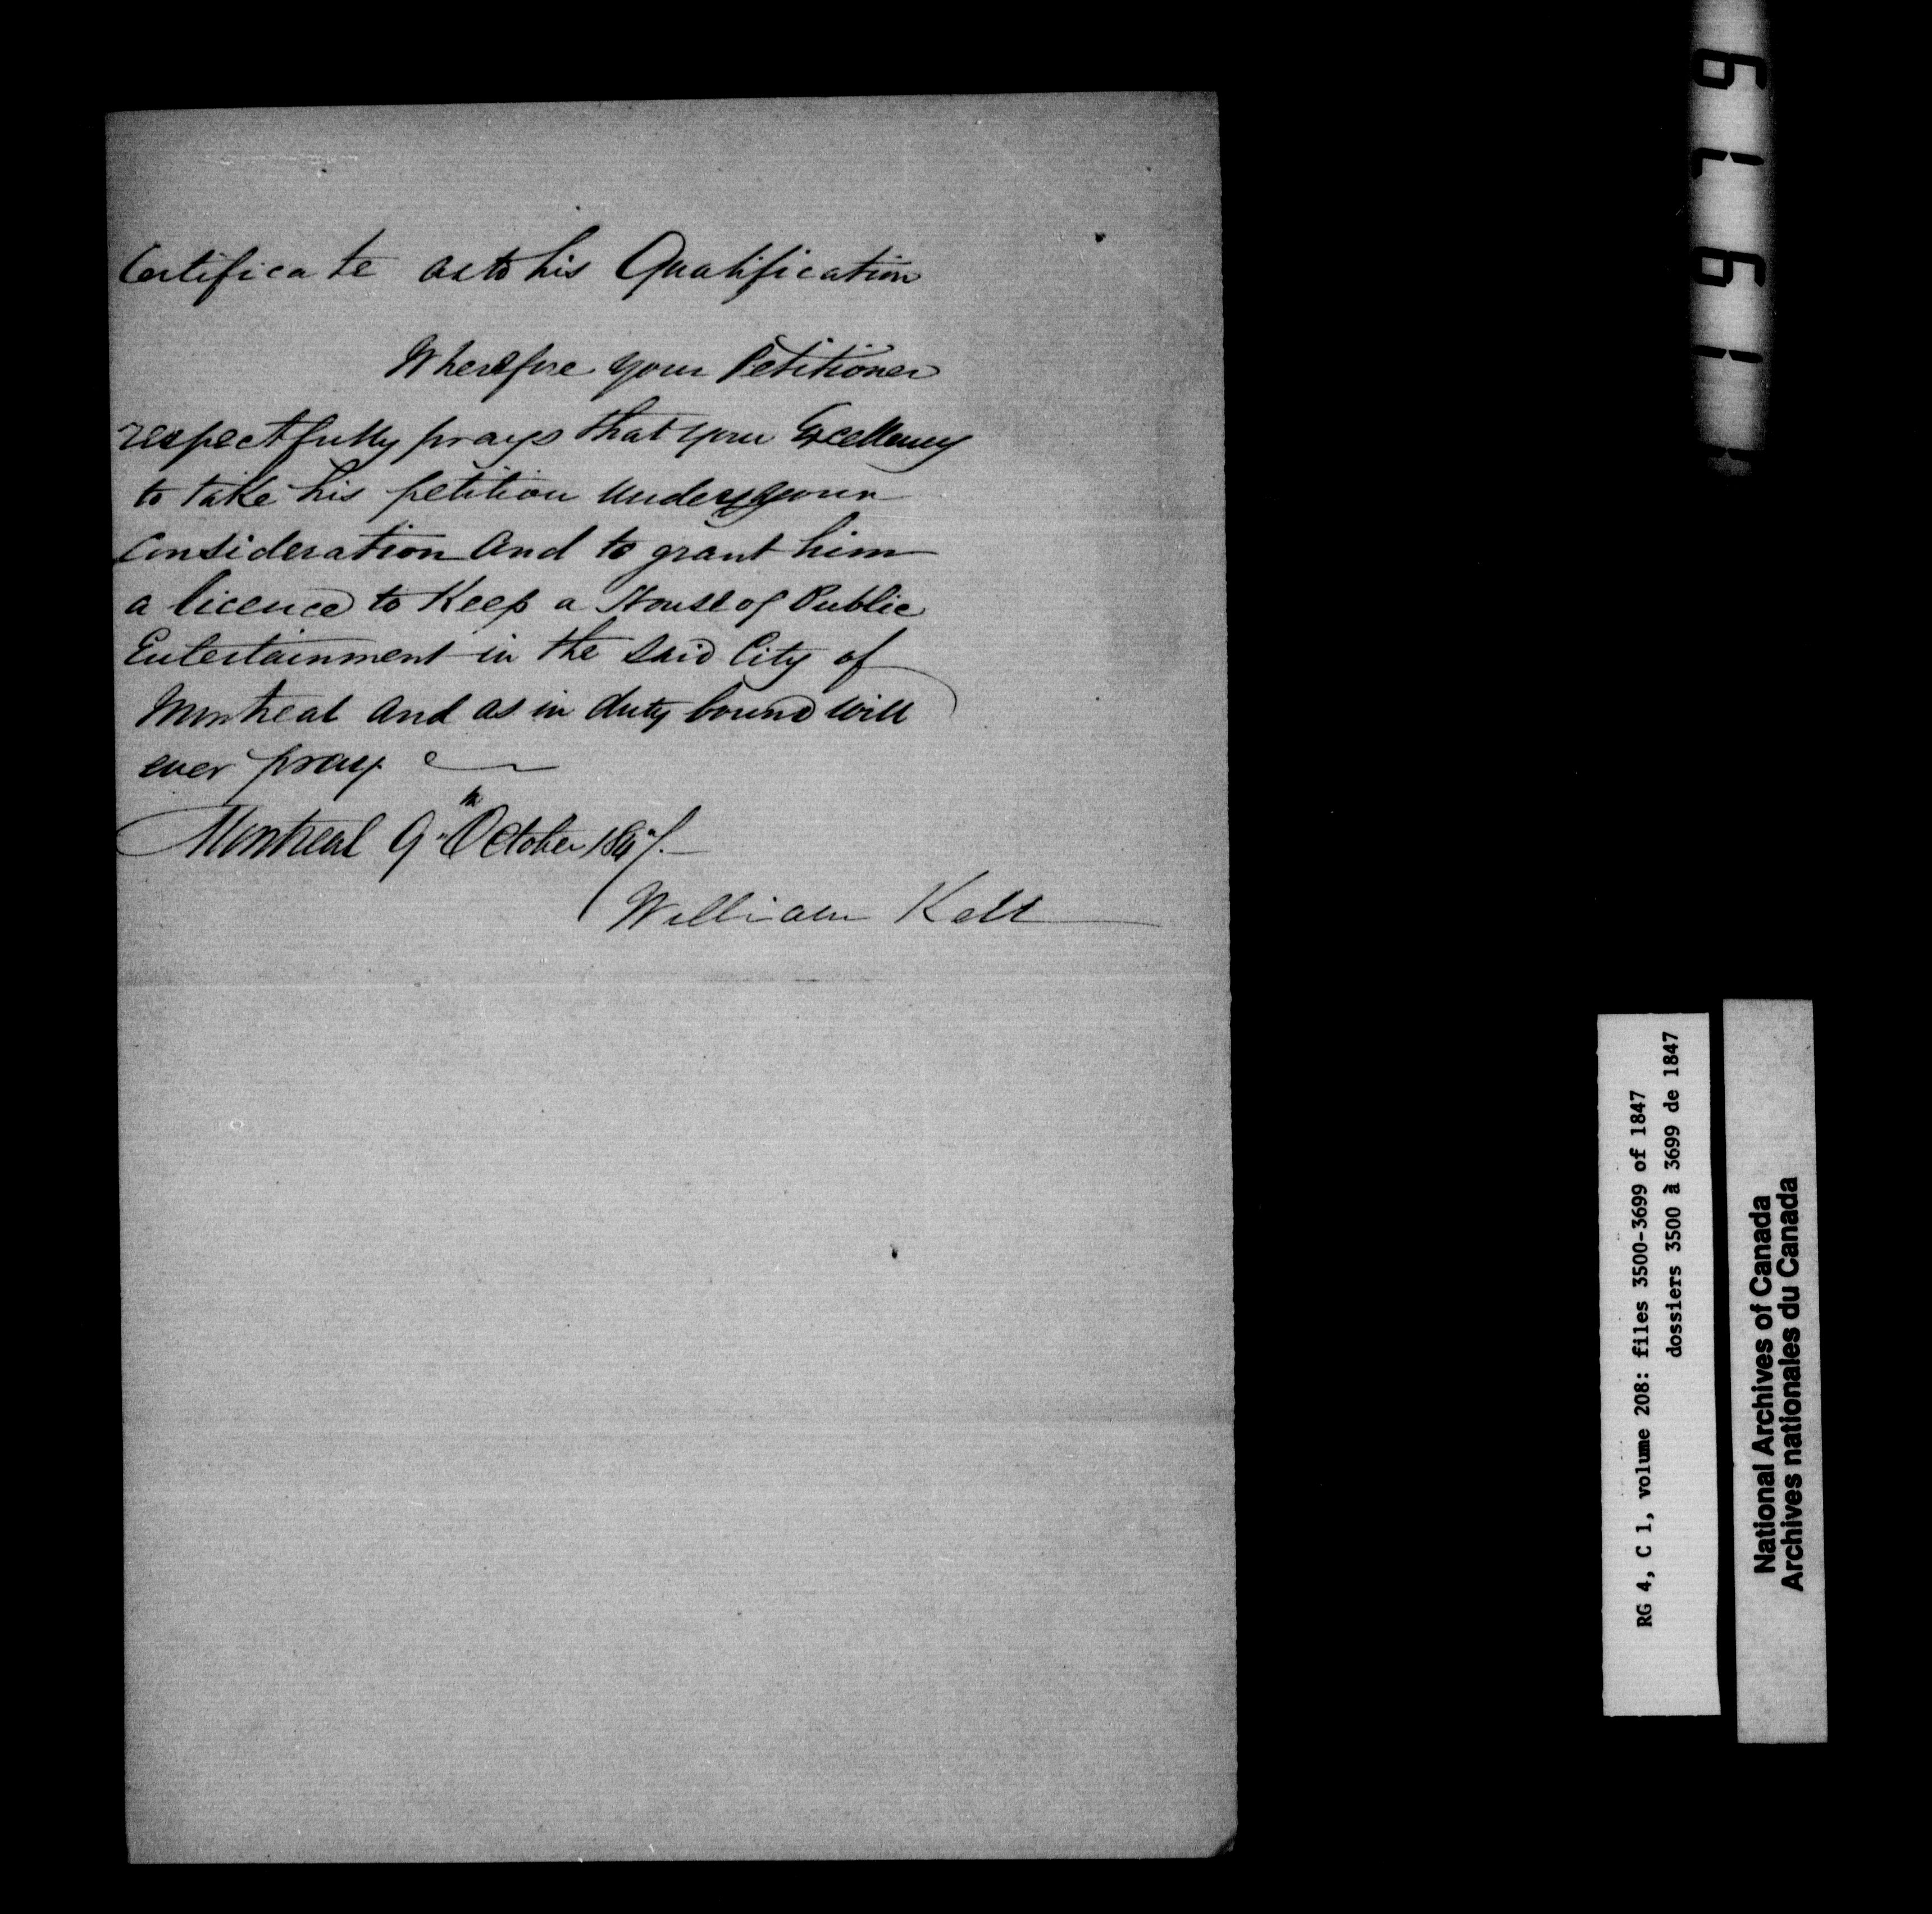 Certificate as to his Qualification
Wherefore your Petitioner
respectfully prays that your Excellency
to take his petition under your
Consideration and to grant him
a licence to Keep a House of Public
Entertainment in the said City of
Montreal and as in duty bound will
ever pray
Montreal 9th October 1847.
William Kell
RG 4, C 1, volume 208: files 3500-3699 of 1847
dossiers 3500 à 3699 de 1847
National Archives of Canada
Archives nationales du Canada